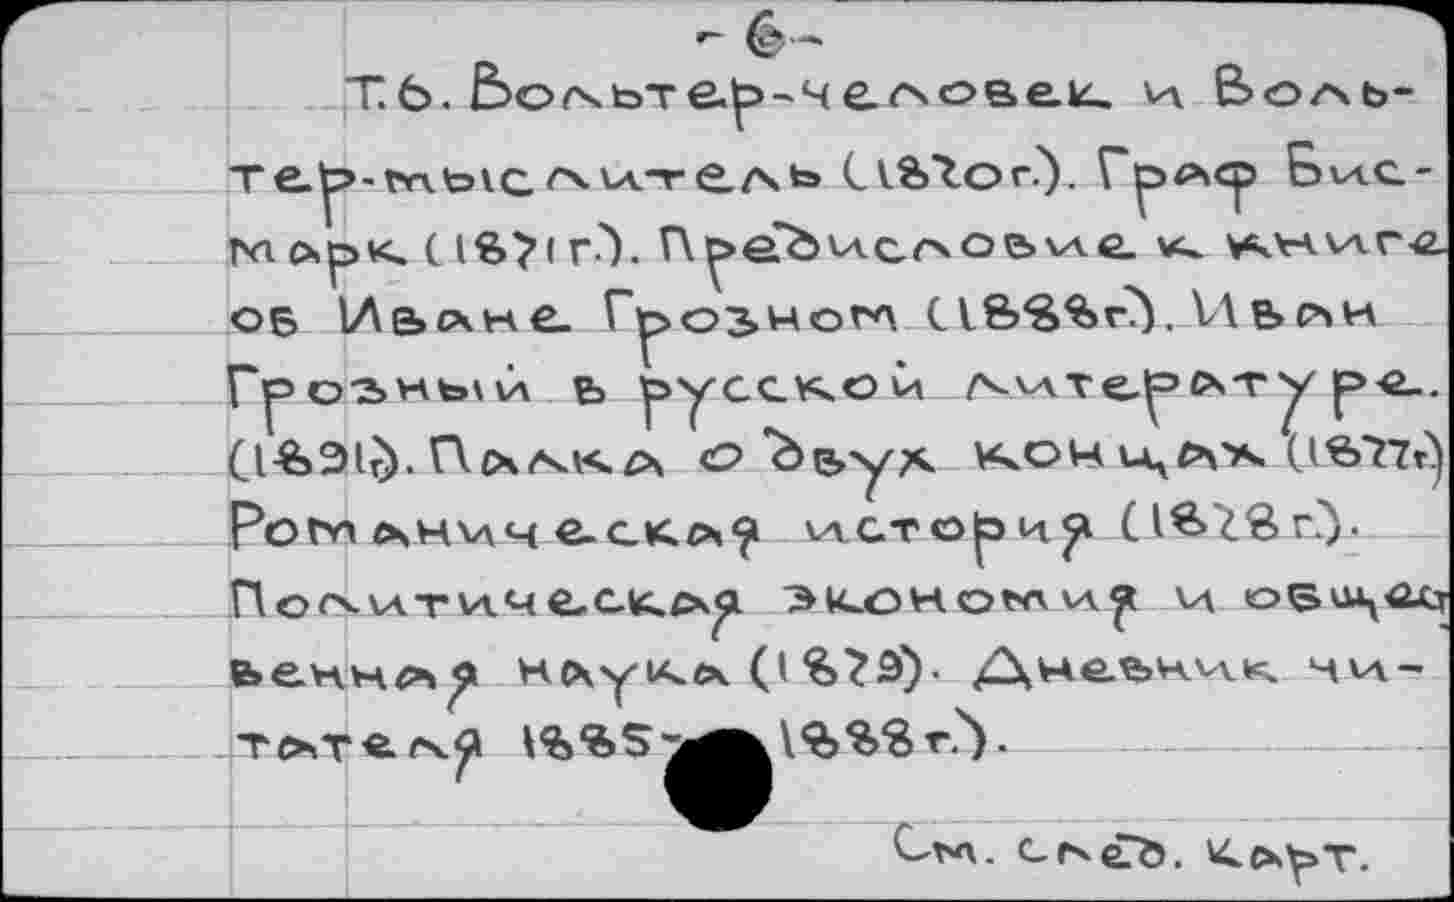 - 6 -
Т.6. Вольтер-человек и Воль-
тер-мыслитель (1870г.). Граф Бис-
марк (1871г.). Предисловие к книге
об Иване Грозном (1888г.). Иван
Грозный в русской литературе.
(1891г). Палка о двух концах (1877г.)
Романическая история (1878г.).
Политическая экономия и общест
венная наука (1879). Дневник чи-
тателя 1885-1888г.).
См. след. карт.